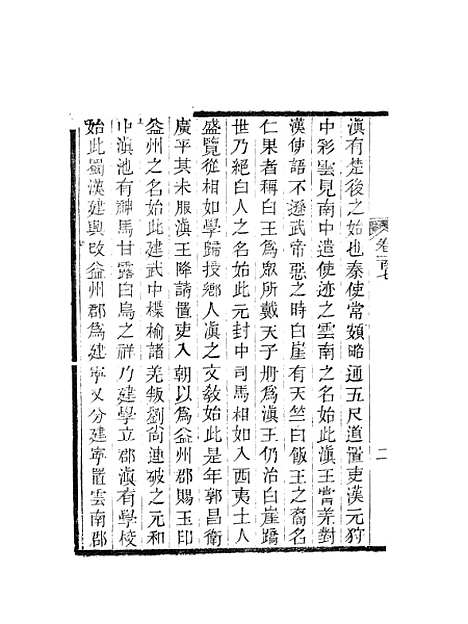 卷一百七
二
滇有楚後之始也秦使常頞略通五尺道置吏漢元狩
中彩雲見南中遣使迹之雲南之名始此滇王嘗羌對
漢使語不遜武帝惡之時白崖有天竺白飯王之裔名
仁果者稱白王爲衆所戴天子册爲滇王仍治白崖蹻
世乃絕白人之名始此元封中司馬相如入西夷土人
盛覽從相如學歸授鄉人滇之文教始此是年郭昌衛
廣平其未服滇王降請置吏入朝以爲益州郡賜玉印
益州之名始此建武中楪榆諸羌叛劉尚連破之元和
中滇池有神馬甘露白烏之祥乃建學立郡滇有學校
始此蜀漢建興改益州郡爲建寧又分建寧置雲南郡